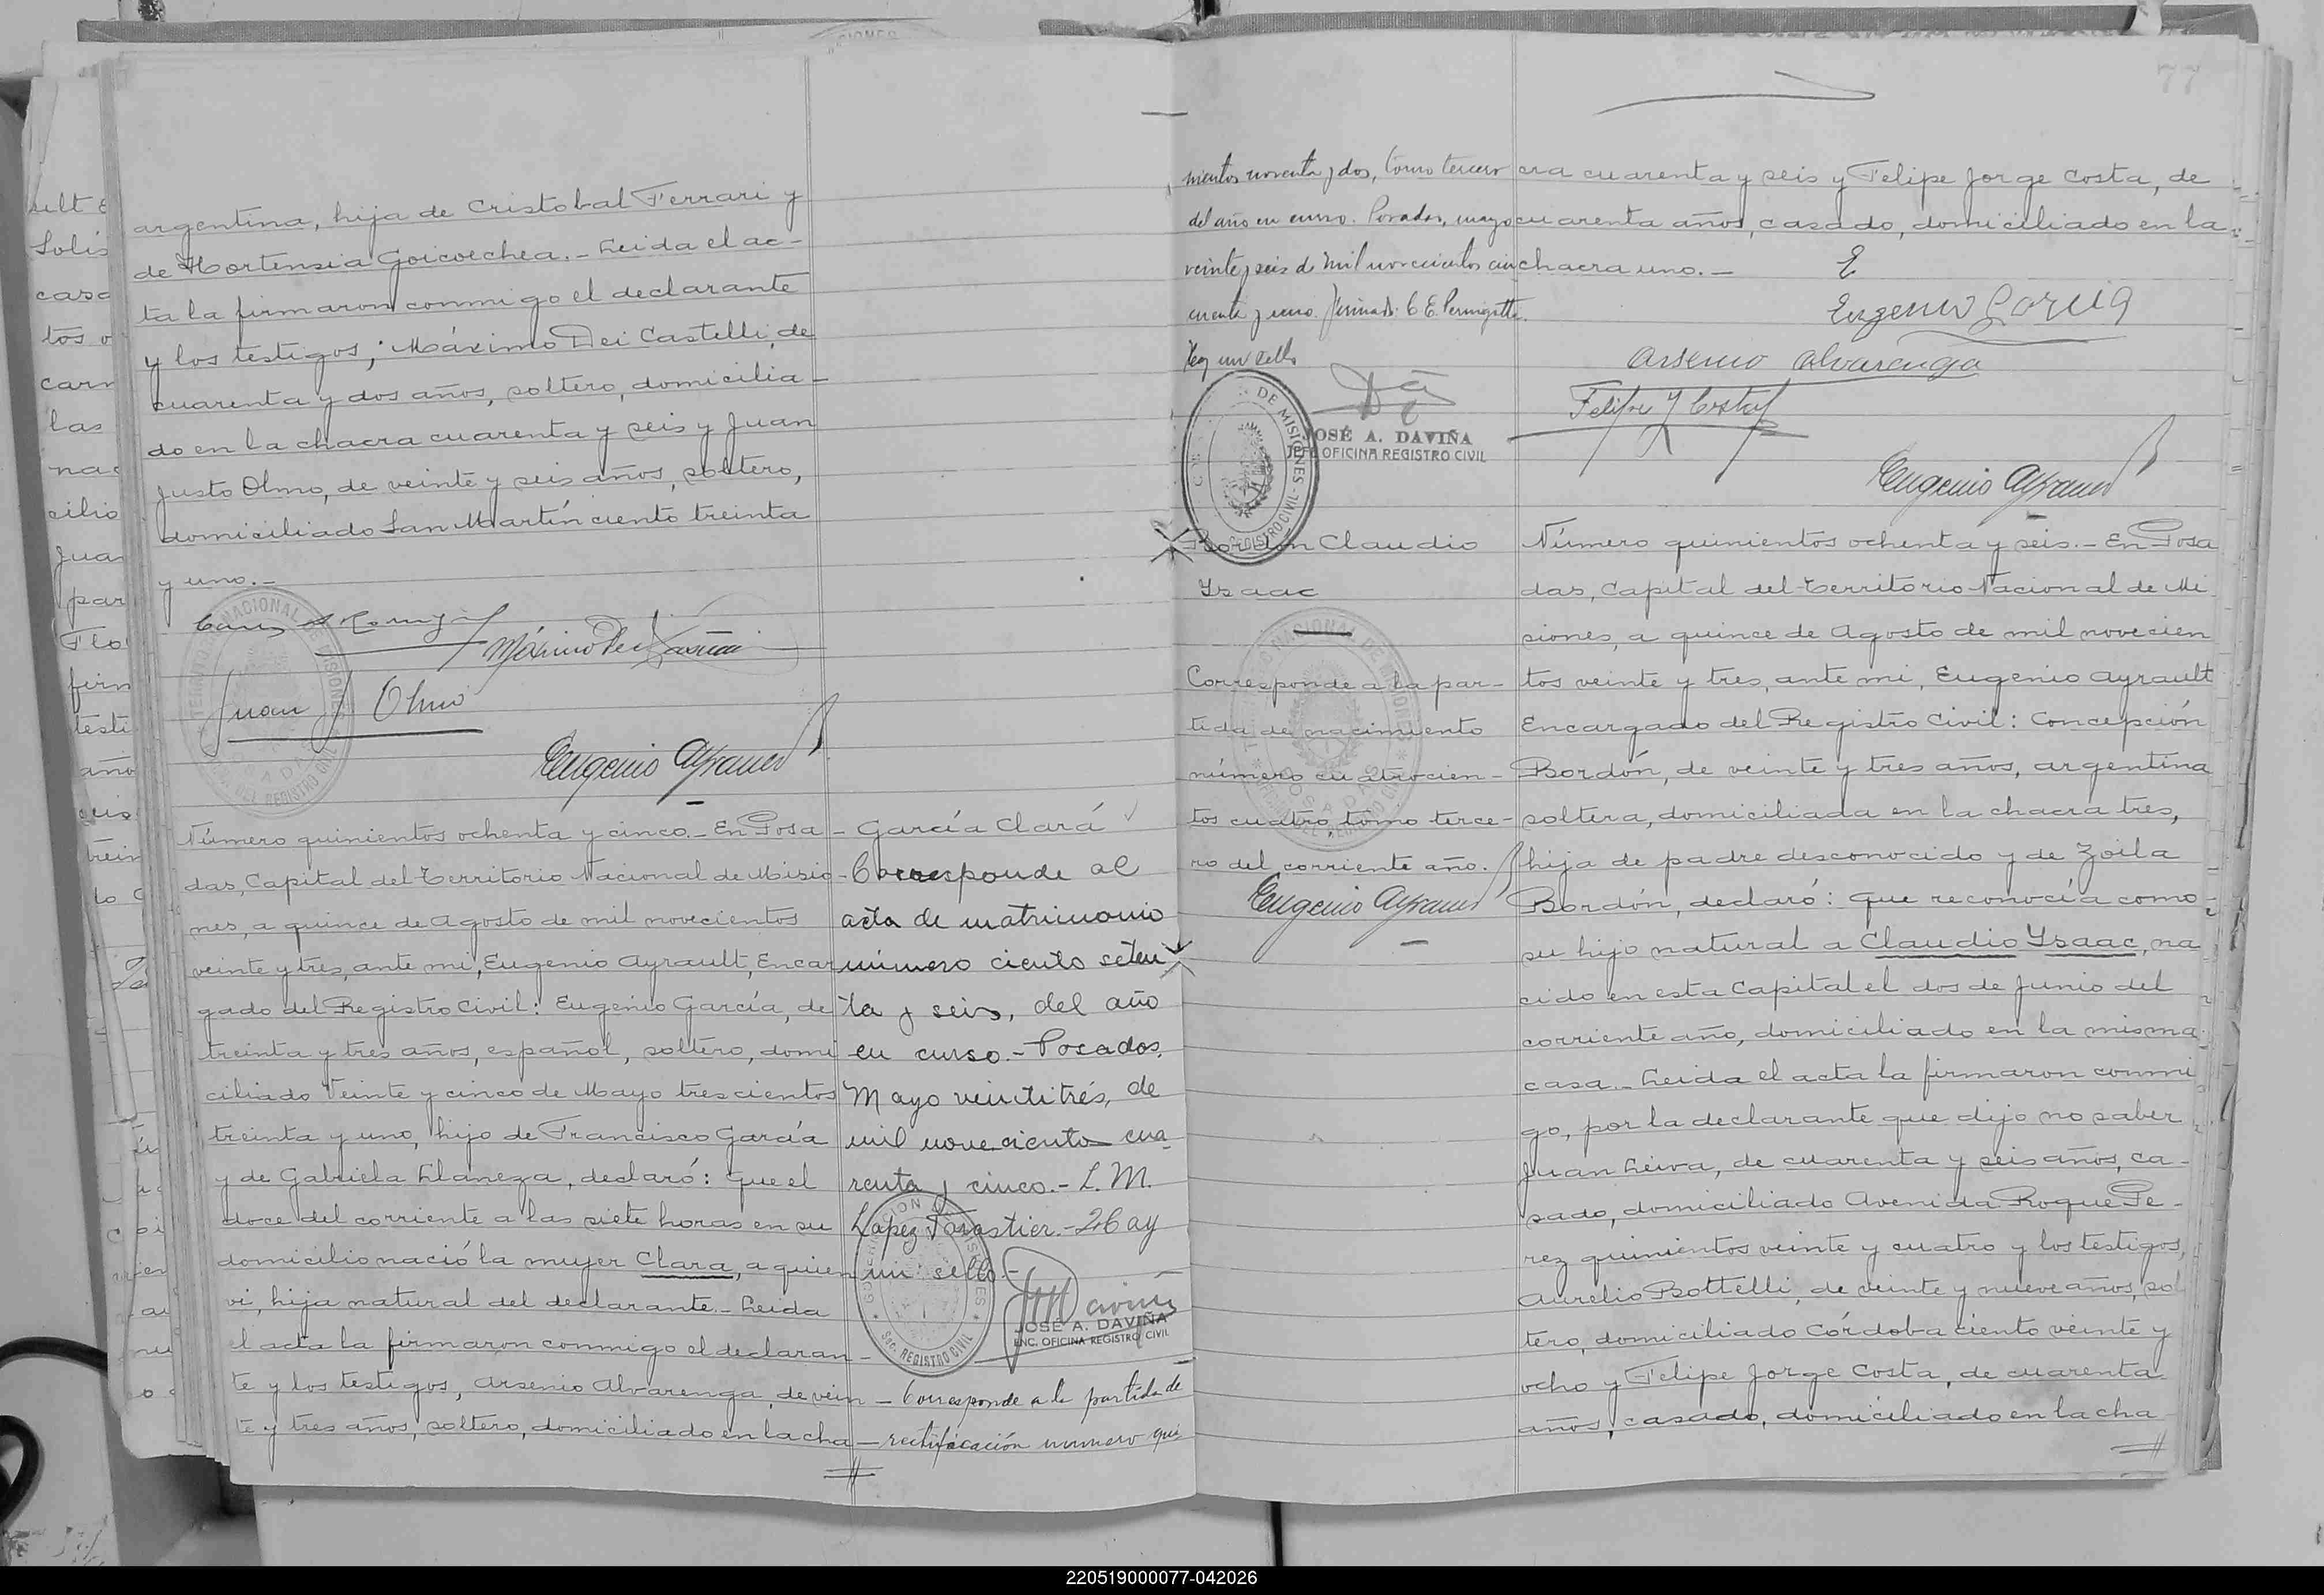 argentina, hija de Cristobal Ferrari y
de Hortensia Goicoechea.- Leida el ac-
ta la firmaron conmigo el declarante
y los testigos; Máximo Dei Castelli, de
cuarenta y dos años, soltero, domicilia-
do en la chacra cuarenta y seis y Juan
Justo Olmo, de veinte y seis años, soltero,
domiciliado San Martín ciento treinta
y uno.-
Máximo Dei
Juan J Olmo
Eugenio Ayrault
Número quinientos ochenta y cinco.- En Posa-
das, Capital del Territorio Nacional de Misio-
nes, a quince de Agosto de mil novecientos
veinte y tres, ante mi, Eugenio Ayrault, Encar
gado del Registro Civil: Eugenio García, de
treinta y tres años, español, soltero, domi
ciliado Veinte y cinco de Mayo trescientos
treinta y uno, hijo de Francisco García
y de Gabriela Llaneza, declaró: Que el
doce del corriente a las siete horas en su
domicilio nació la mujer Clara, a quien
vi, hija natural del declarante.- Leida
el acta la firmaron conmigo el declaran-
te y los testigos, Arsenio Alvarenga, de vein-
te y tres años, soltero, domiciliado en la cha-
García Clará
Corresponde al
acta de matrimonio
número ciento seten
ta y seis, del año
en curso.- Posadas,
Mayo veintitrés, de
mil novecientos cua-
renta y cinco.- L. M.
Lopez Forastier.- Hay
un sello.-
JOSÉ A. DAVIÑA
ENC. OFICINA REGISTRO CIVIL
SEC. REGISTRO CIVIL
Corresponde a la partida de
rectificación número qui
77
nientos noventa y dos, tomo tercero
del año en curso. Posadas, mayo
veinte y seis de mil novecientos cin
cuenta y uno. Firmado: C. E.
Hay un sello
DE MISIONES
REGISTRO CIVIL
JOSÉ A. DAVIÑA
JEFE OFICINA REGISTRO CIVIL
cra cuarenta y seis y Felipe Jorge Costa, de
cuarenta años, casado, domiciliado en la
chacra uno.-
E
Eugenio García
Arsenio Alvarenga
Felipe J Costa
Eugenio Ayrault
Bordón Claudio
Ysaac
Corresponde a la par-
tida de nacimiento
número cuatrocien-
tos cuatro, tomo terce-
ro del corriente año.
Eugenio Ayrault
Número quinientos ochenta y seis.- En Posa
das, Capital del Territorio Nacional de Mi
siones, a quince de Agosto de mil novecien
tos veinte y tres, ante mi, Eugenio Ayrault
Encargado del Registro Civil: Concepción
Bordón, de veinte y tres años, argentina
soltera, domiciliada en la chacra tres,
hija de padre desconocido y de Zoila
Bordón, declaró: Que reconocía como
su hijo natural a Claudio Ysaac, na
cido en esta Capital el dos de Junio del
corriente año, domiciliado en la misma
casa.- Leida el acta la firmaron conmi
go, por la declarante que dijo no saber
Juan Leiva, de cuarenta y seis años, ca-
sado, domiciliado Avenida Roque Pe-
rez quinientos veinte y cuatro y los testigos,
Aurelio Bottelli, de veinte y nueve años, sol
tero, domiciliado Córdoba ciento veinte y
ocho y Felipe Jorge Costa, de cuarenta
años, casado, domiciliado en la cha
220519000077-042026